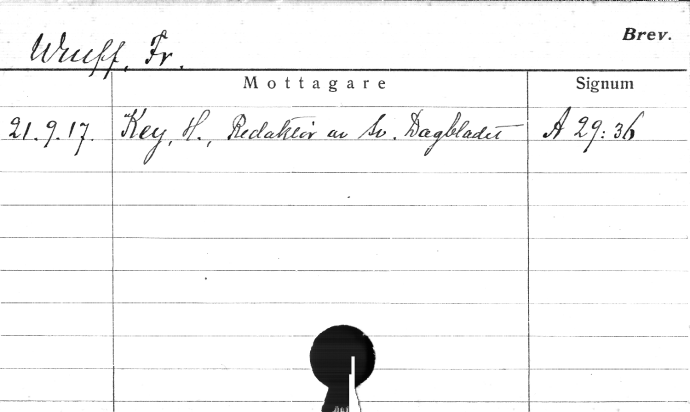 Brev.
Wulff, Fr.
Mottagare Signum
21.9.17. Key, H., Redaktör av Sv. Dagbladet A 29:36